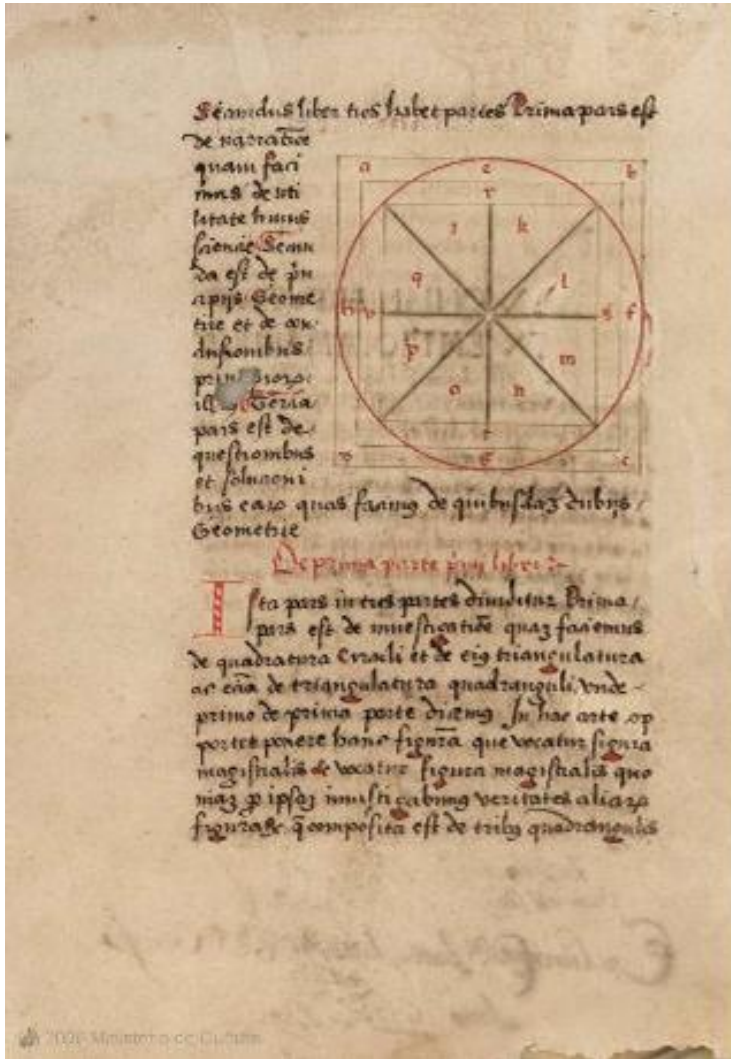 Secundus liber tres habet partes Prima pars est
de narratiõe
quam faci
mus de uti
litate huius
sciencie Secun
da est de pñ
cipijs Geome
trie et de con
clusionibus
ill Tercia
pars est de
questionibus
et solucioni
bus earꝝ quas facimꝯ de quibusdaʒ dubijs
Geometrie
a e b
r
i k
q l
h v s f
p m
o n
t
d g c
De prima parte pmi libri
Ista pars in tres partes diuiditur Prima
pars est de inuestigatiõe quaʒ faciemus
de quadratura Circuli et de eiꝯ triangulatura
ac eciã de triangulatura quadranguli, vnde
primo de prima parte dicemꝯ In hac arte op
portet ponere hanc figurã que vocatur figura
magistralis et vocatur figura magistralis quo
niaʒ ꝑ ipsaʒ inuestigabimꝯ veritates aliarꝝ
figurarꝝ q̃ composita est de tribꝯ quadrangulis
2006 Ministerio de Cultura